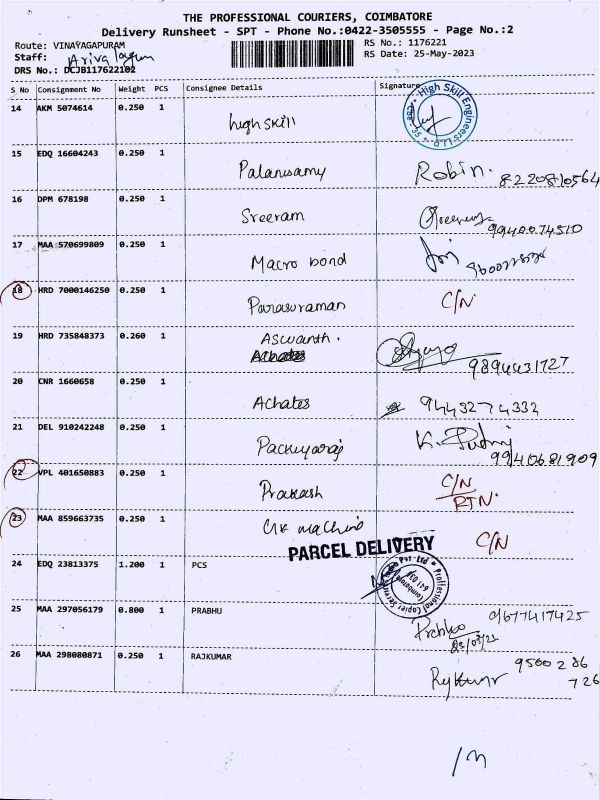 THE PROFESSIONAL COURIERS, COIMBATORE
Delivery Runsheet - SPT - Phone No.:0422-3505555 - Page No.:2
Route: VINAYAGAPURAM
RS No.: 1176221
Staff:
RS Date: 25-May-2023
DRS No.: DCJB117622102
S No Consignment No Weight PCS Consignee Details Signature
14 AKM 5074614 0.250 1 high skill High Skill Engineers LLP
15 EDQ 16604243 0.250 1 Palanisamy Robin. 8220810564
16 DPM 678198 0.250 1 Sreeram 9940074510
17 MAA 570699809 0.250 1 Macro bond
18 HRD 7000146250 0.250 1 Parasuraman C/N
19 HRD 735848373 0.260 1 Aswanth. 9894431727
20 CNR 1660658 0.250 1 Achates 9443274332
21 DEL 910242248 0.250 1 9940681909
22 VPL 401650883 0.250 1 Prakash C/N RTN.
23 MAA 859663735 0.250 1 C/N
PARCEL DELIVERY
24 EDQ 23813375 1.200 1 PCS
25 MAA 297056179 0.800 1 PRABHU Prabhu 9677417425
26 MAA 298080871 0.250 1 RAJKUMAR Rajkumar 9500286
726